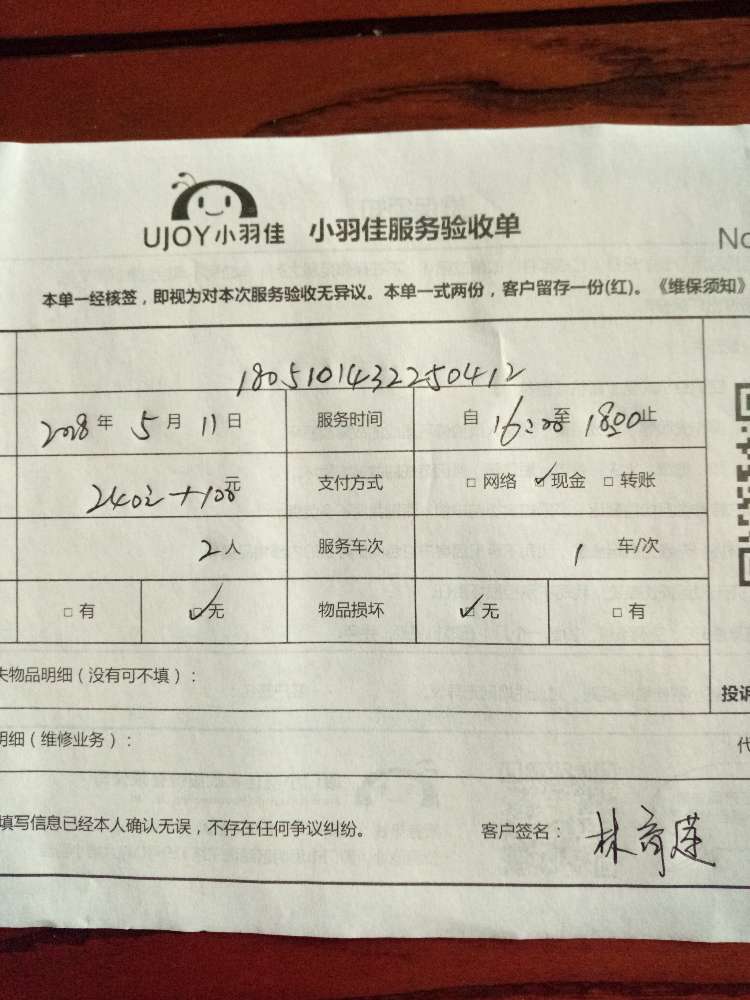 UJOY小羽佳 小羽佳服务验收单
No
本单一经核签，即视为对本次服务验收无异议。本单一式两份，客户留存一份(红)。《维保须知》
1805101432250412
2018年 5月 11日 服务时间 自 16:00 至 18:00 止
240元+100元 支付方式 □ 网络 ✓现金 □ 转账
2人 服务车次 1 车/次
□ 有 ✓无 物品损坏 ✓无 □ 有
失物品明细（没有可不填）：
投诉
明细（维修业务）：
代
填写信息已经本人确认无误，不存在任何争议纠纷。 客户签名：林育莲